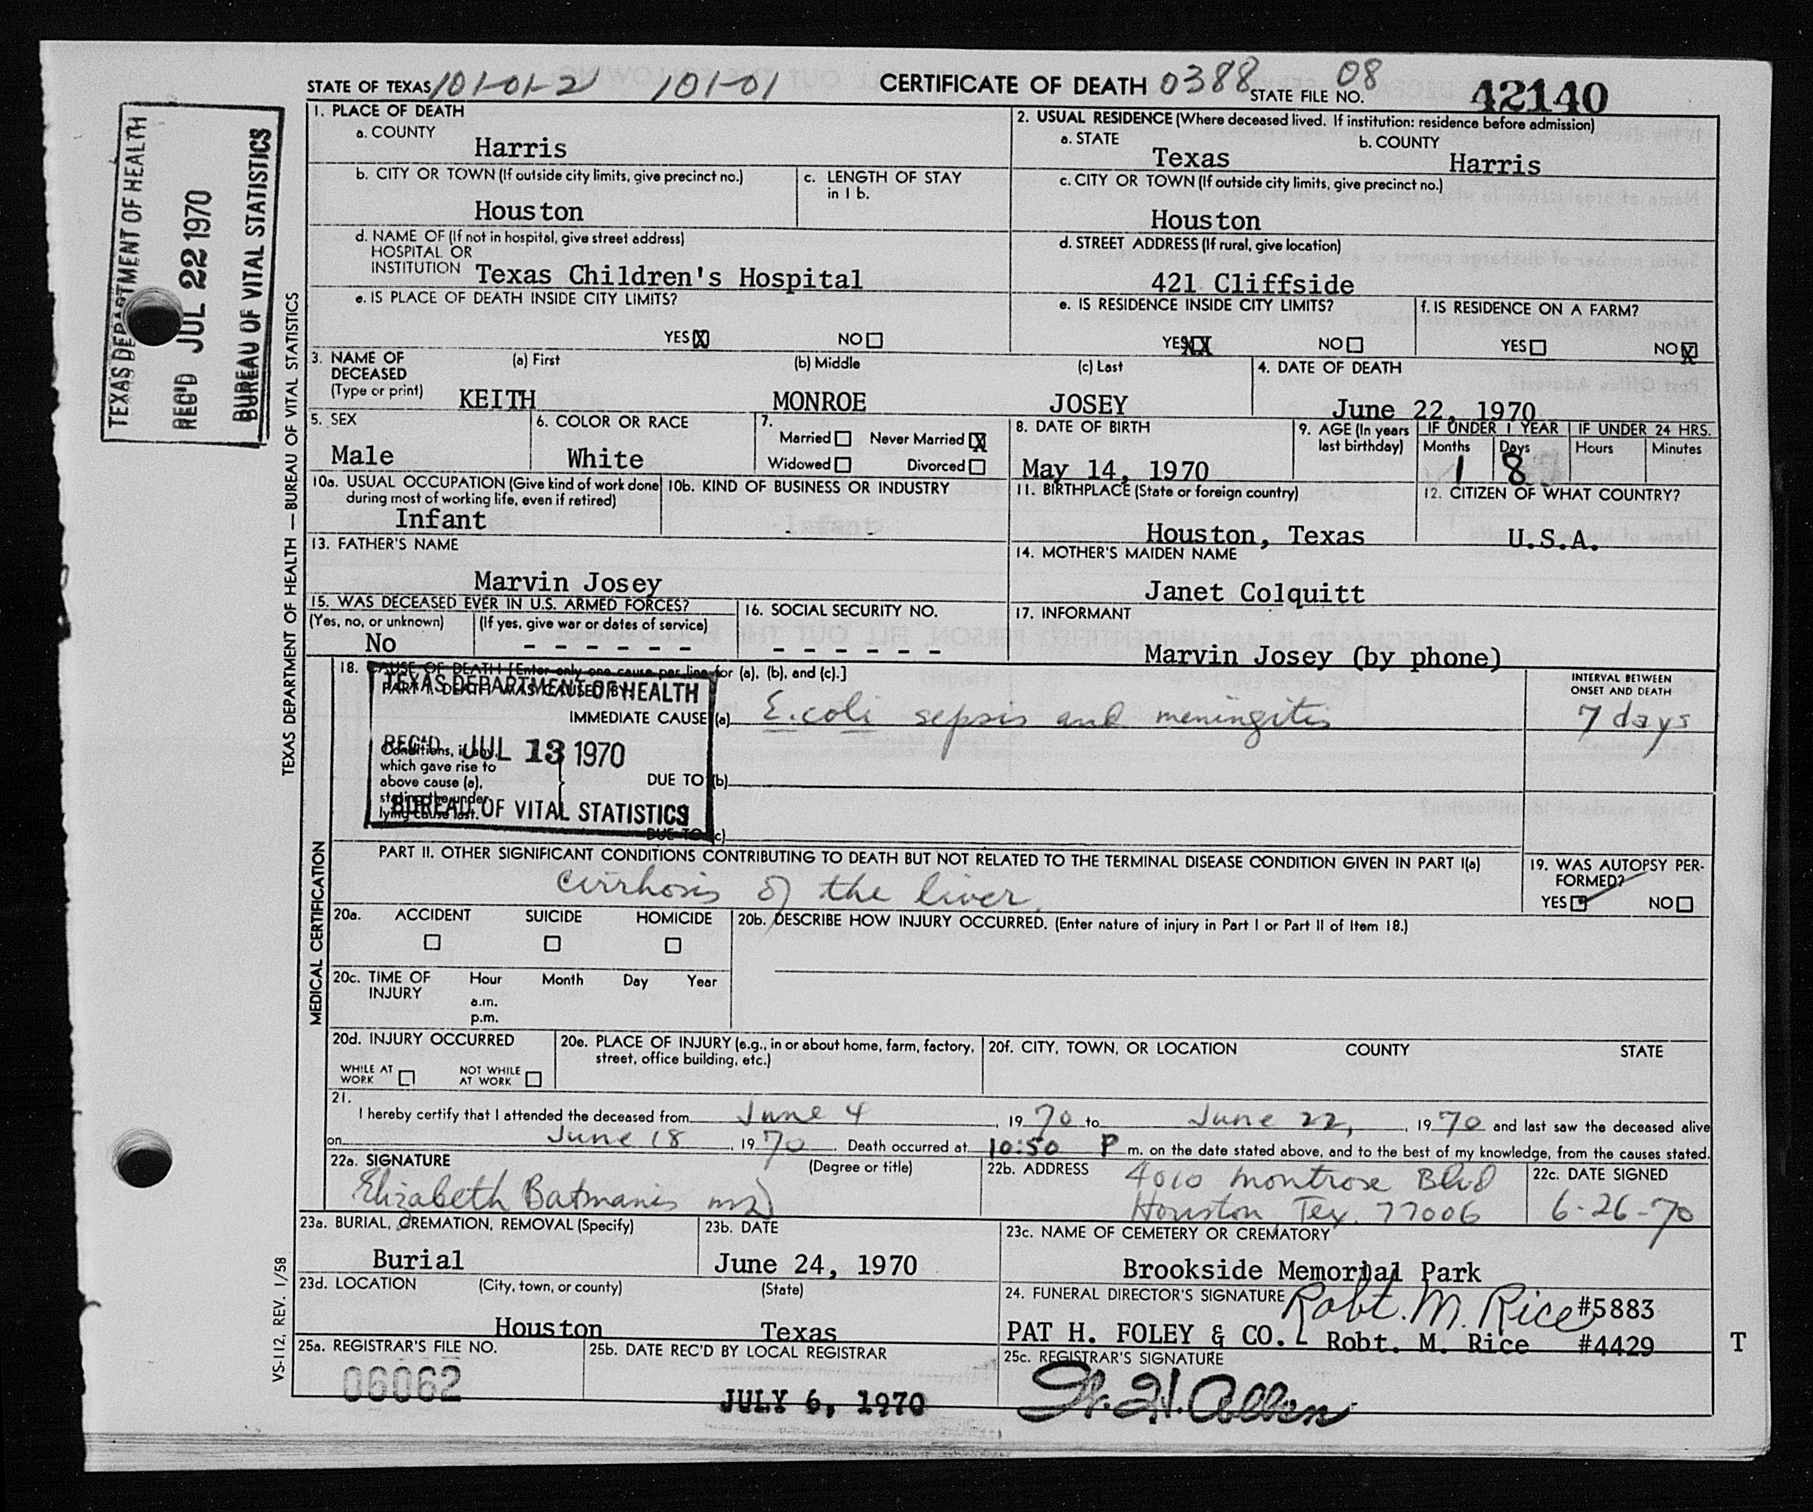 STATE OF TEXAS 101-01-2 101-01 CERTIFICATE OF DEATH 0388 08 STATE FILE NO. 42140
TEXAS DEPARTMENT OF HEALTH
REC'D JUL 22 1970
BUREAU OF VITAL STATISTICS
TEXAS DEPARTMENT OF HEALTH — BUREAU OF VITAL STATISTICS
1. PLACE OF DEATH
a. COUNTY
Harris
2. USUAL RESIDENCE (Where deceased lived. If institution: residence before admission)
a. STATE
Texas
b. COUNTY
Harris
b. CITY OR TOWN (If outside city limits, give precinct no.)
Houston
c. LENGTH OF STAY
in 1 b.
c. CITY OR TOWN (If outside city limits, give precinct no.)
Houston
d. NAME OF (If not in hospital, give street address)
HOSPITAL OR
INSTITUTION Texas Children's Hospital
d. STREET ADDRESS (If rural, give location)
421 Cliffside
e. IS PLACE OF DEATH INSIDE CITY LIMITS?
YES X NO
e. IS RESIDENCE INSIDE CITY LIMITS?
YES XX NO
f. IS RESIDENCE ON A FARM?
YES NO X
3. NAME OF
DECEASED
(Type or print)
(a) First
KEITH
(b) Middle
MONROE
(c) Last
JOSEY
4. DATE OF DEATH
June 22, 1970
5. SEX
Male
6. COLOR OR RACE
White
7.
Married Never Married X
Widowed Divorced
8. DATE OF BIRTH
May 14, 1970
9. AGE (In years
last birthday)
IF UNDER 1 YEAR
Months Days
1 8
IF UNDER 24 HRS.
Hours Minutes
10a. USUAL OCCUPATION (Give kind of work done
during most of working life, even if retired)
Infant
10b. KIND OF BUSINESS OR INDUSTRY
- - -
11. BIRTHPLACE (State or foreign country)
Houston, Texas
12. CITIZEN OF WHAT COUNTRY?
U.S.A.
13. FATHER'S NAME
Marvin Josey
14. MOTHER'S MAIDEN NAME
Janet Colquitt
15. WAS DECEASED EVER IN U.S. ARMED FORCES?
(Yes, no, or unknown) (If yes, give war or dates of service)
No - - - - - -
16. SOCIAL SECURITY NO.
- - - - - -
17. INFORMANT
Marvin Josey (by phone)
MEDICAL CERTIFICATION
18. CAUSE OF DEATH [Enter only one cause per line for (a), (b), and (c).]
PART I. DEATH WAS CAUSED BY:
TEXAS DEPARTMENT OF HEALTH
REC'D JUL 13 1970
BUREAU OF VITAL STATISTICS
IMMEDIATE CAUSE (a) E. coli sepsis and meningitis
INTERVAL BETWEEN
ONSET AND DEATH
7 days
Conditions, if any,
which gave rise to
above cause (a),
stating the under-
lying cause last.
DUE TO (b)
DUE TO (c)
PART II. OTHER SIGNIFICANT CONDITIONS CONTRIBUTING TO DEATH BUT NOT RELATED TO THE TERMINAL DISEASE CONDITION GIVEN IN PART I(a)
cirrhosis of the liver.
19. WAS AUTOPSY PER-
FORMED?
YES NO
20a. ACCIDENT SUICIDE HOMICIDE
20b. DESCRIBE HOW INJURY OCCURRED. (Enter nature of injury in Part I or Part II of Item 18.)
20c. TIME OF
INJURY
Hour Month Day Year
a.m.
p.m.
20d. INJURY OCCURRED
WHILE AT
WORK
NOT WHILE
AT WORK
20e. PLACE OF INJURY (e.g., in or about home, farm, factory,
street, office building, etc.)
20f. CITY, TOWN, OR LOCATION COUNTY STATE
21.
I hereby certify that I attended the deceased from June 4, 1970 to June 22, 1970 and last saw the deceased alive
on June 18, 1970. Death occurred at 10:50 P m. on the date stated above, and to the best of my knowledge, from the causes stated.
22a. SIGNATURE (Degree or title)
Elizabeth Batmanis MD
22b. ADDRESS
4010 Montrose Blvd
Houston, Tex. 77006
22c. DATE SIGNED
6-26-70
23a. BURIAL, CREMATION, REMOVAL (Specify)
Burial
23b. DATE
June 24, 1970
23c. NAME OF CEMETERY OR CREMATORY
Brookside Memorial Park
23d. LOCATION (City, town, or county) (State)
Houston Texas
24. FUNERAL DIRECTOR'S SIGNATURE Robt. M. Rice #5883
PAT H. FOLEY & CO. - Robt. M. Rice #4429
T
25a. REGISTRAR'S FILE NO.
06062
25b. DATE REC'D BY LOCAL REGISTRAR
JULY 6, 1970
25c. REGISTRAR'S SIGNATURE
W. H. Allen
VS-112, REV. 1/58